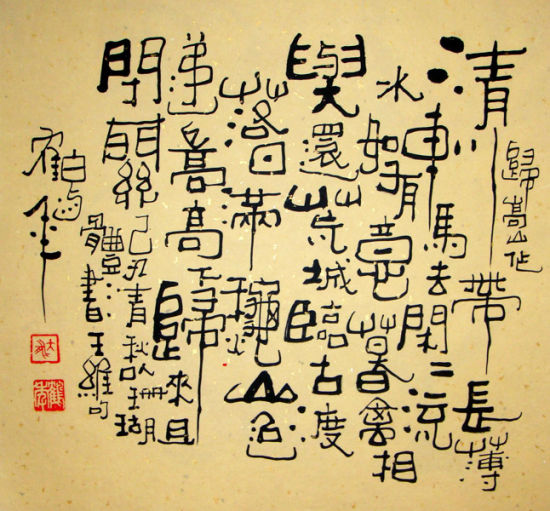 歸嵩山作
清川帶長薄
車馬去閑二流
水如有意暮禽相
與還荒城臨古度
落日滿龝山迢
遞嵩高下歸來且
閉關己丑青秋珊瑚
體書王維句